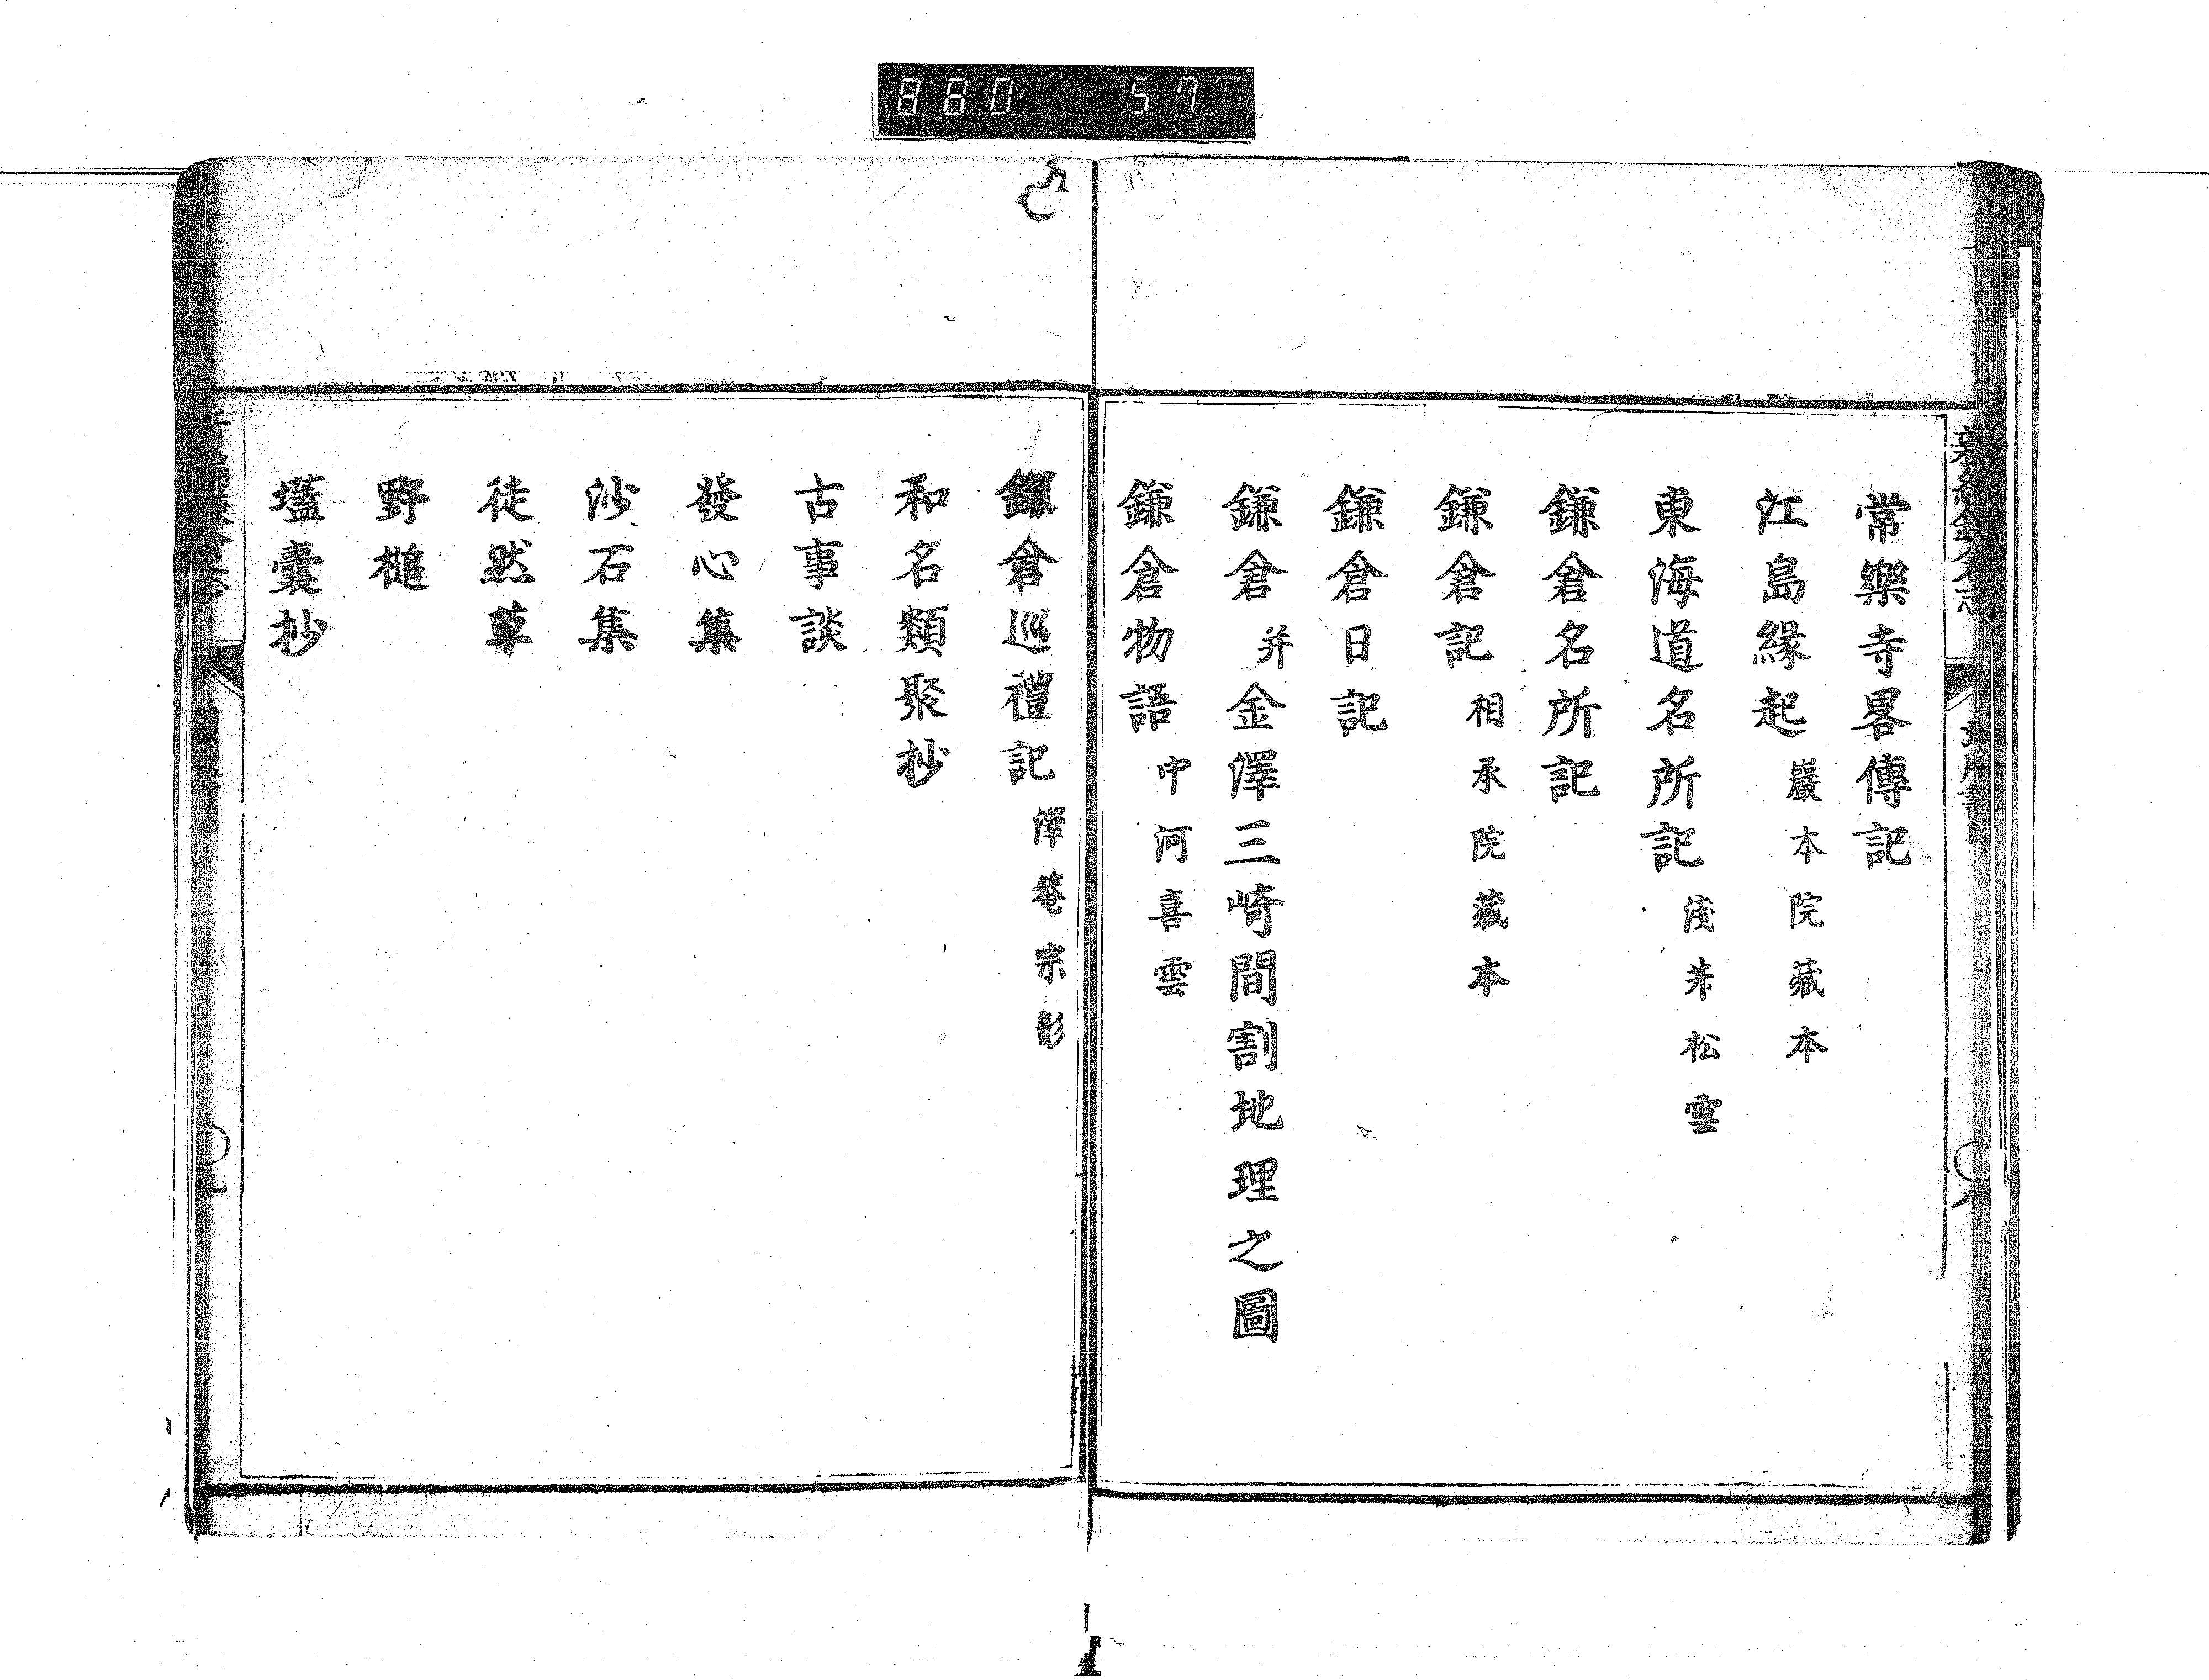 880 57
常樂寺畧傳記
江島緣起 巖本院藏本
東海道名所記 浅井松雲
鎌倉名所記
鎌倉記 相承院藏本
鎌倉日記
鎌倉并金澤三崎間割地理之圖
鎌倉物語 中河喜雲
鎌倉巡禮記 澤菴宗彭
和名類聚抄
古事談
發心集
沙石集
徒然草
野槌
壒囊抄